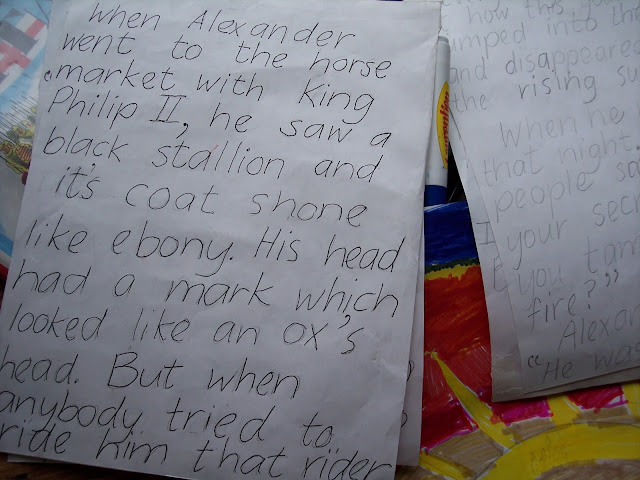 When Alexander
went to the horse
market with King
Philip II, he saw a
black stallion and
it's coat shone
like ebony. His head
had a mark which
looked like an ox's
head. But when
anybody tried to
ride him that rider
how this
into the
and disappeared
the rising
When he
that night.
people
I your
you
fire?"
"He was